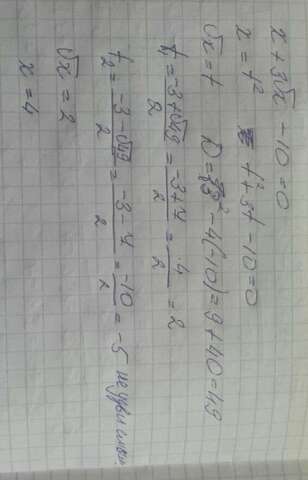 x + 3√x - 10 = 0
x = t² t² + 3t - 10 = 0
√x = t D = 3² - 4(-10) = 9 + 40 = 49
t₁ = (-3 + √49)/2 = (-3 + 7)/2 = 4/2 = 2
t₂ = (-3 - √49)/2 = (-3 - 7)/2 = -10/2 = -5 не
√x = 2
x = 4